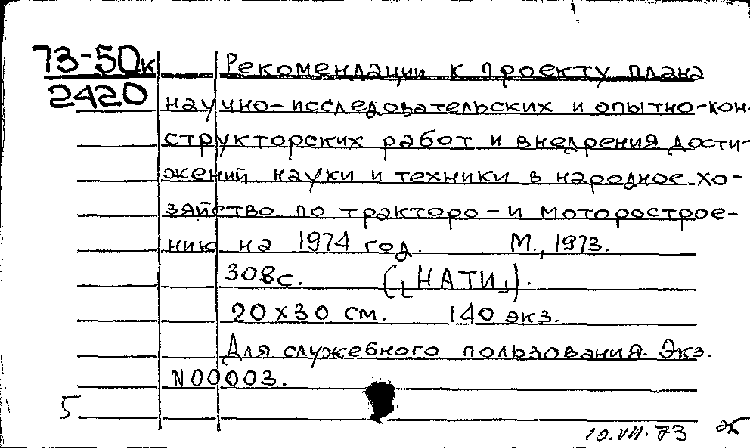 73-50к
2420
Рекомендации к проекту плана
научно-исследовательских и опытно-кон-
структорских работ и внедрения дости-
жений науки и техники в народное хо-
зяйство по тракторо- и моторострое-
нию на 1974 год. М., 1973.
308с. ([НАТИ]).
20х30 см. 140 экз.
Для служебного пользования. Экз.
N00003.
5
19.VII.73